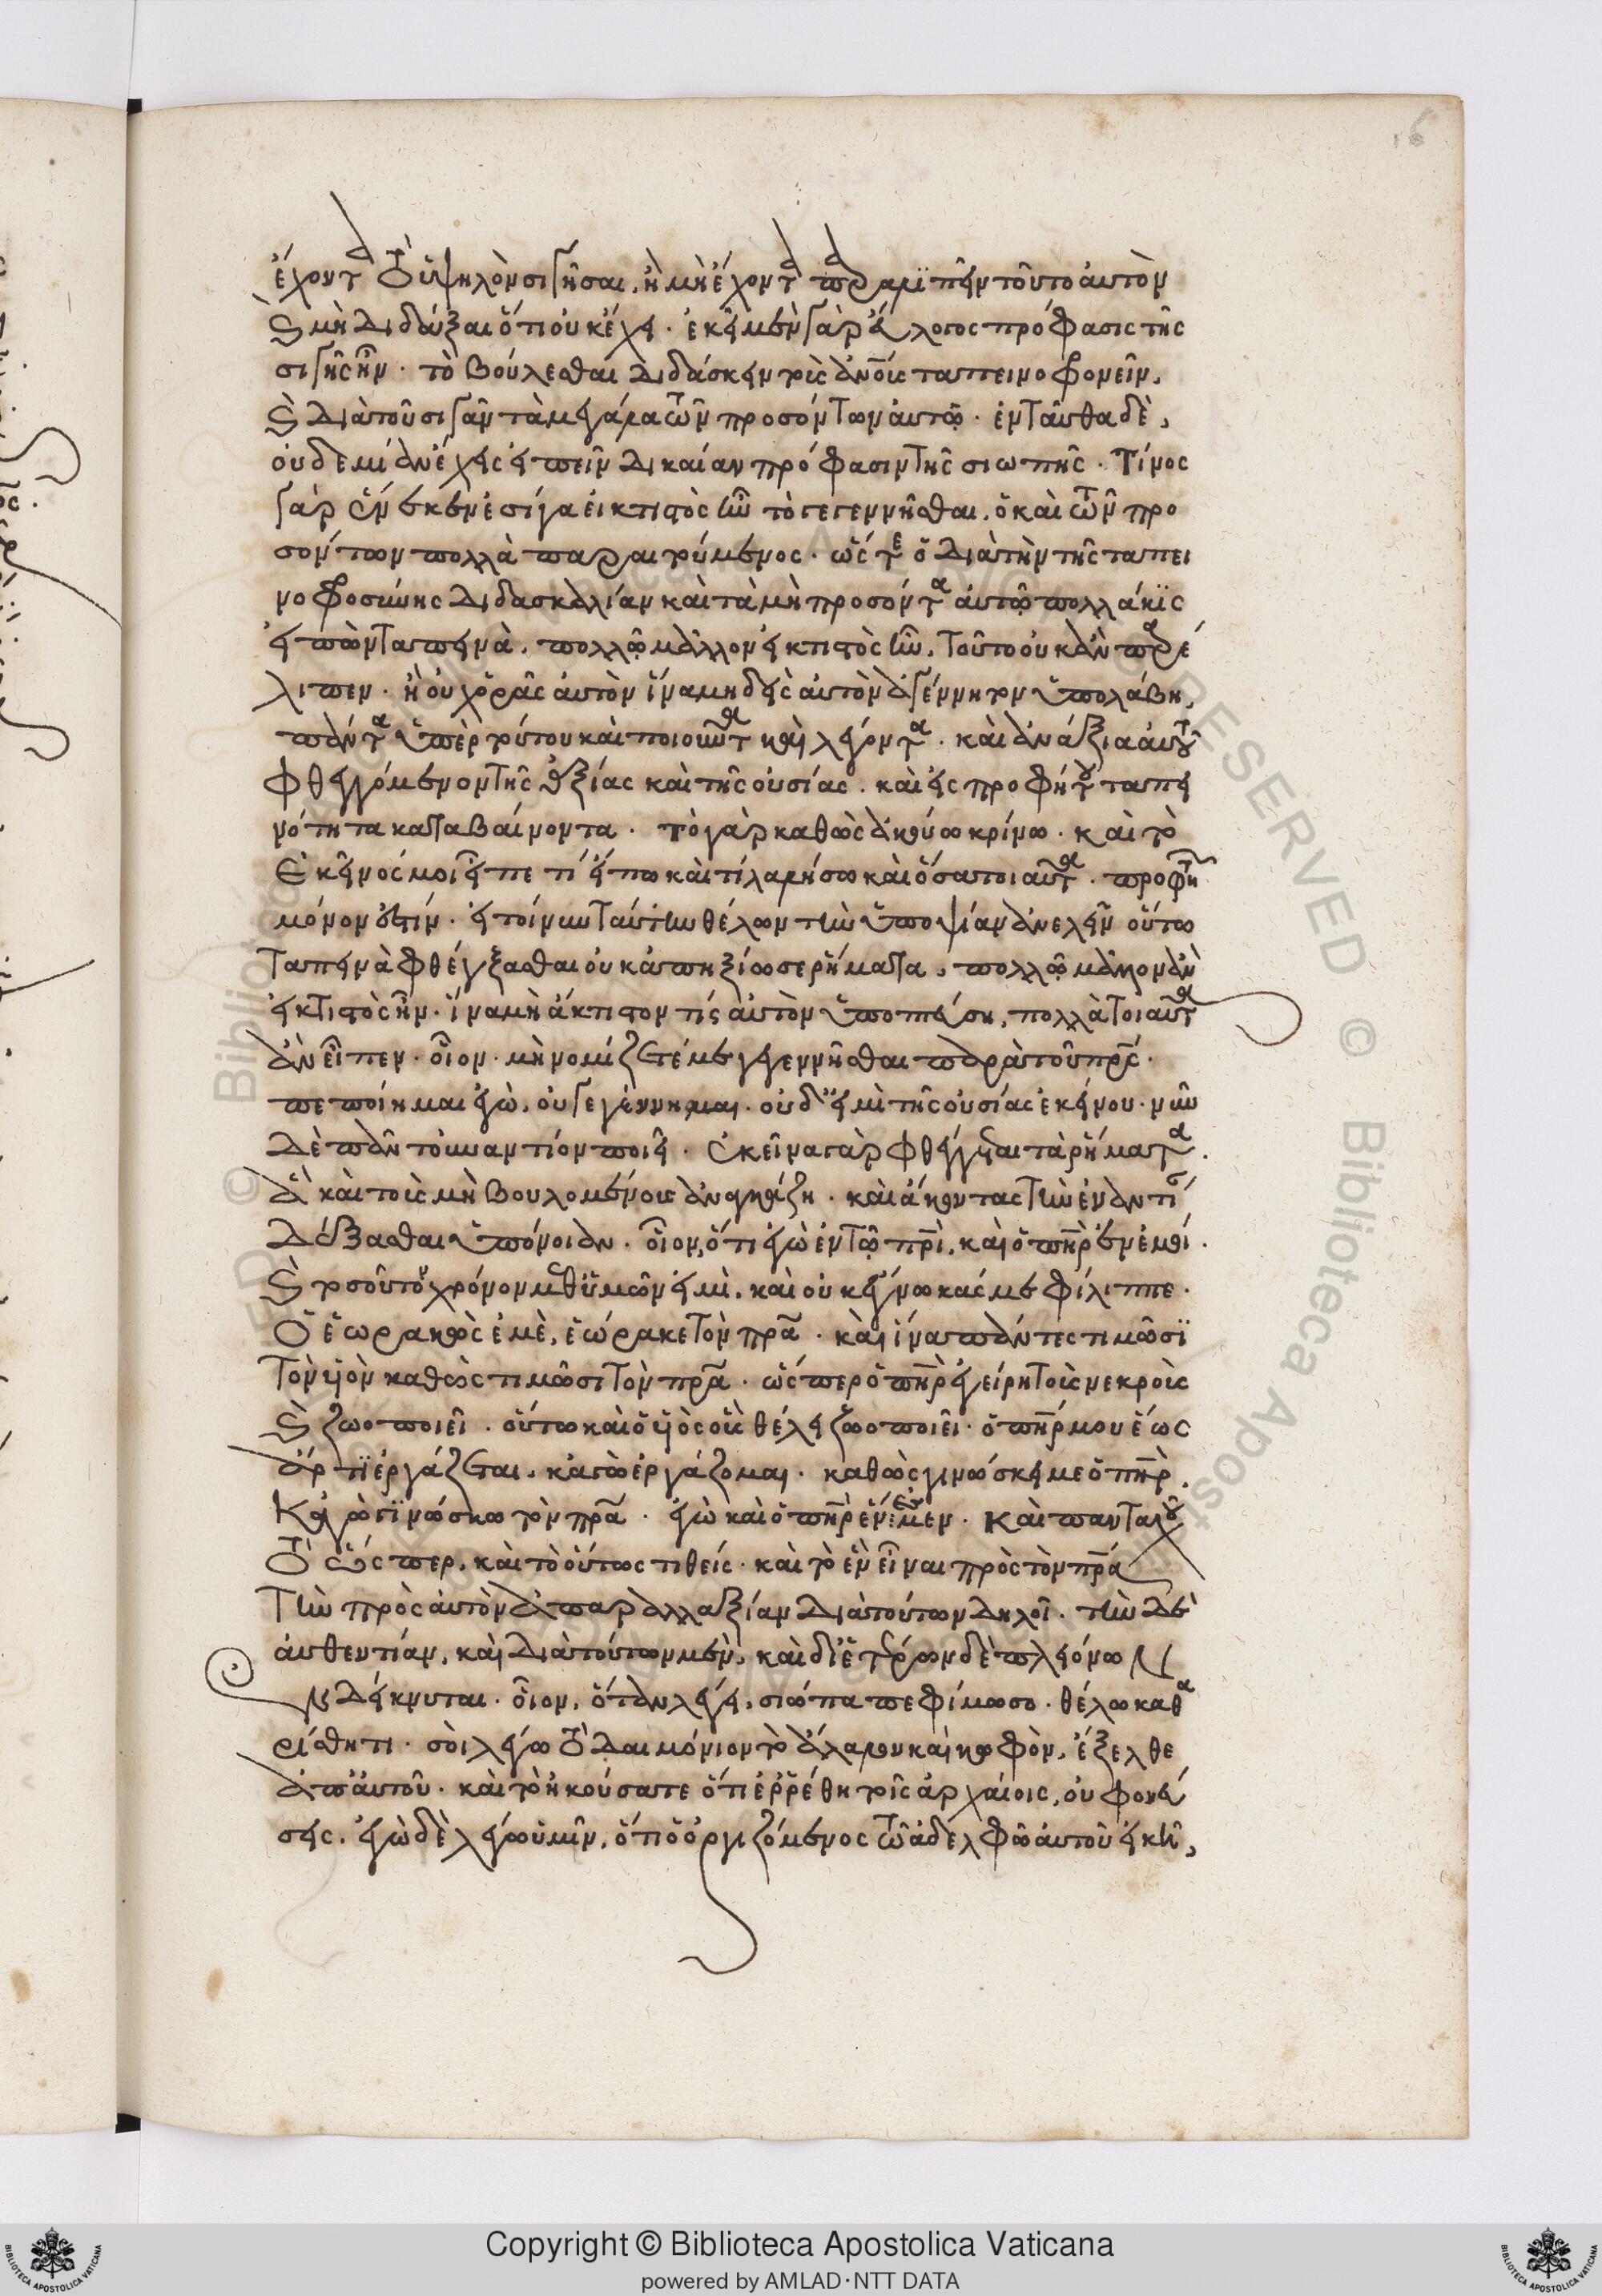 16
ἔχοντα τὸ ὑψηλὸν σιγῆσαι, ἢ μὴ ἔχοντα παραλιπεῖν τοῦτο αὐτὸν
καὶ μὴ διδάξαι ὅτι οὐκ ἔχει. ἐκεῖ μὲν γὰρ εὔλογος πρόφασις τῆς
σιγῆς ἦν. τὸ βούλεσθαι διδάσκειν τοὺς ἀν̅ο̅υ̅ς ταπεινοφρονεῖν,
καὶ διὰ τοῦ σιγᾶν τὰ μεγάλα τῶν προσόντων αὐτῷ. ἐνταῦθα δὲ,
οὐδεμίαν ἔχεις εἰπεῖν δικαίαν πρόφασιν τῆς σιωπῆς. τίνος
γὰρ ἕνεκεν ἐσίγα εἰ κτιστὸς ἦν τὸ γεγεννῆσθαι, ὁ καὶ τῶν προ
σόντων πολλὰ παραιτούμενος. ὥστε ὁ διὰ τὴν τῆς ταπει
νοφροσύνης διδασκαλίαν καὶ τὰ μὴ προσόντα αὐτῷ πολλάκις
εἰπὼν ταπεινὰ, πολλῷ μᾶλλον εἰ κτιστὸς ἦν, τοῦτο οὐκ ἂν παρέ
λιπεν. ἢ οὐχ ὁρᾷς αὐτὸν ἵνα μηδεὶς αὐτὸν ἀγέννητον ὑπολάβῃ,
πάντα ὑπὲρ τούτου καὶ ποιοῦντα καὶ λέγοντα. καὶ ἀνάξια αὐτοῦ
φθεγγόμενον τῆς ἀξίας καὶ τῆς οὐσίας. καὶ εἰς προφήτου ταπει
νότητα καταβαίνοντα. τὸ γὰρ καθὼς ἀκούω κρίνω. καὶ τὸ
ἐκεῖνός μοι εἶπε τί εἴπω καὶ τί λαλήσω καὶ ὅσα τοιαῦτα. προφητῶν
μόνον ἐστίν. εἰ τοίνυν ταύτην θέλων τὴν ὑποψίαν ἀνελεῖν οὕτω
ταπεινὰ φθέγξασθαι οὐκ ἀπηξίωσε ῥήματα, πολλῷ μᾶλλον ἂν
εἰ κτιστὸς ἦν. ἵνα μὴ ἄκτιστον τίς αὐτὸν ὑποπτεύσῃ, πολλὰ τοιαῦτα
ἂν εἶπεν. οἷον. μὴ νομίζετέ με γεγεννῆσθαι παρὰ τοῦ π̅ρ̅ς̅.
πεποίημαι ἐγὼ, οὐ γεγέννημαι. οὐδ' εἰμὶ τῆς οὐσίας ἐκείνου. νῦν
δὲ πᾶν τοὐναντίον ποιεῖ. ἐκεῖνα γὰρ φθέγγεται τὰ ῥήματα.
ἃ καὶ τοὺς μὴ βουλομένους ἀναγκάζει. καὶ ἄκοντας τὴν ἐναντίαν
δέξασθαι ὑπόνοιαν. οἷον, ὅτι ἐγὼ ἐν τῷ π̅ρ̅ὶ, καὶ ὁ π̅η̅ρ̅ ἐν ἐμοί.
καὶ τοσοῦτον χρόνον μεθ' ὑμῶν εἰμὶ, καὶ οὐκ ἔγνωκάς με φίλιππε.
ὁ ἑωρακὼς ἐμὲ, ἑώρακε τὸν π̅ρ̅α̅. καὶ ἵνα πάντες τιμῶσι
τὸν υἱὸν καθὼς τιμῶσι τὸν π̅ρ̅α̅. ὥσπερ ὁ π̅η̅ρ̅ ἐγείρει τοὺς νεκροὺς
καὶ ζωοποιεῖ. οὕτω καὶ ὁ υἱὸς οὓς θέλει ζωοποιεῖ. ὁ π̅η̅ρ̅ μου ἕως
ἄρτι ἐργάζεται, κἀγὼ ἐργάζομαι. καθὼς γινώσκει με ὁ π̅η̅ρ̅.
κἀγὼ γινώσκω τὸν π̅ρ̅α̅. ἐγὼ καὶ ὁ π̅η̅ρ̅ ἕν ἐσμεν. καὶ πανταχοῦ
τὸ ὥσπερ, καὶ τὸ οὕτως τιθεὶς. καὶ τὸ ἓν εἶναι πρὸς τὸν π̅ρ̅α̅
τὴν πρὸς αὐτὸν ἀπαραλλαξίαν διὰ τούτων δηλοῖ. τὴν δὲ
αὐθεντίαν, καὶ διὰ τούτων μὲν, καὶ δι' ἑτέρων δὲ πλειόνων
ἐνδείκνυται. οἷον, ὅταν λέγῃ, σιώπα πεφίμωσο. θέλω καθα
ρίσθητι. σοὶ λέγω τὸ δαιμόνιον τὸ ἄλαλον καὶ κωφὸν, ἔξελθε
ἀπ' αὐτοῦ. καὶ τὸ ἠκούσατε ὅτι ἐρρέθη τοῖς ἀρχαίοις, οὐ φονεύ
σεις. ἐγὼ δὲ λέγω ὑμῖν, ὅτι ὁ ὀργιζόμενος τῷ ἀδελφῷ αὐτοῦ εἰκῆ,
Copyright © Biblioteca Apostolica Vaticana
powered by AMLAD·NTT DATA